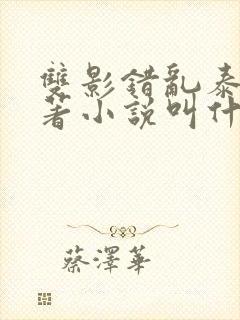 雙影錯亂泰
著小說叫什
蔡澤華